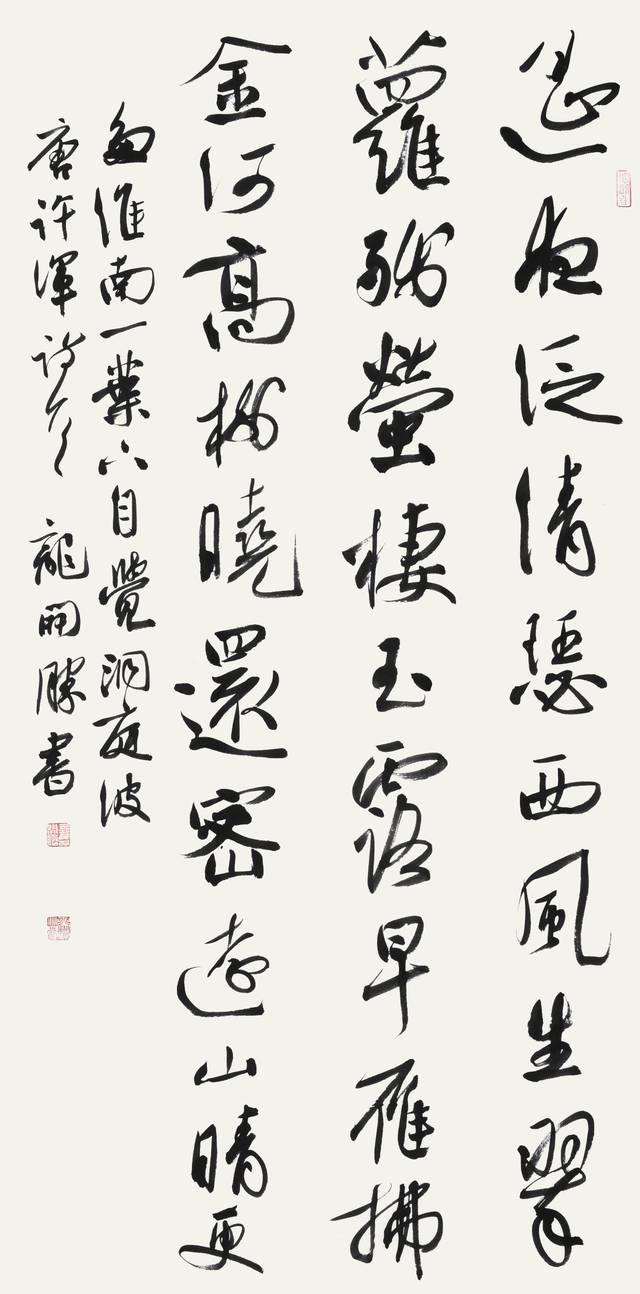 遥夜泛清瑟西風生翠
蘿殘螢棲玉露早雁拂
金河高樹曉還密遠山晴更
多淮南一葉下自覺洞庭波
唐許渾詩一首 龍開勝書